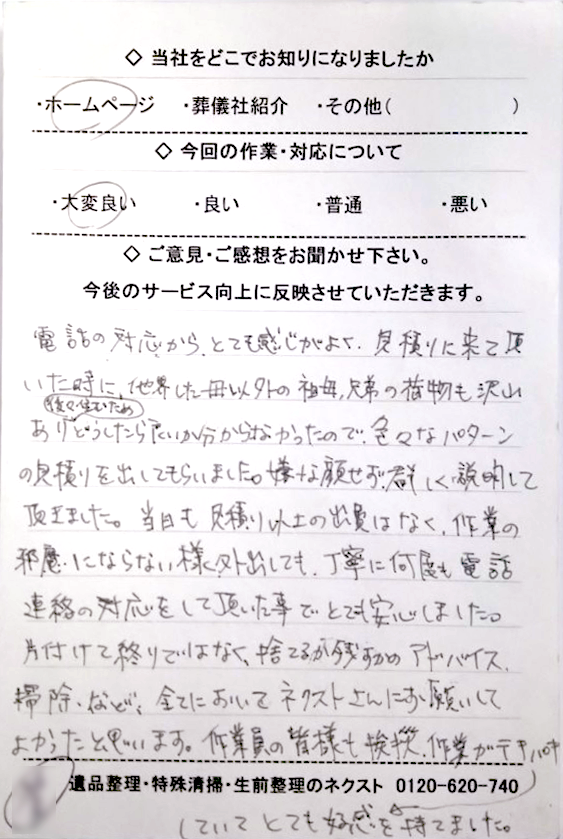 ◇ 当社をどこでお知りになりましたか
・ホームページ ・葬儀社紹介 ・その他( )
◇ 今回の作業・対応について
・大変良い ・良い ・普通 ・悪い
◇ ご意見・ご感想をお聞かせ下さい。
今後のサービス向上に反映させていただきます。
電話の対応から、とても感じがよく、見積りに来て頂
いた時に、他界した母以外の祖母、兄弟の荷物も沢山
ありどうしたら良いか分からなかったので、色々なパターン
の見積りを出してもらいました。嫌な顔せず、詳しく説明して
頂きました。当日も見積り以上の出費はなく、作業の
邪魔にならない様に外出しても、丁寧に何度も電話
連絡の対応をして頂いた事でとても安心しました。
片付けて終りではなく、捨てるか残すかのアドバイス、
掃除、など、全てにおいてネクストさんにお願いして
よかったと思います。作業員の皆様も挨拶、作業がテキパキ
していてとても好感を持てました。
遺品整理・特殊清掃・生前整理のネクスト 0120-620-740